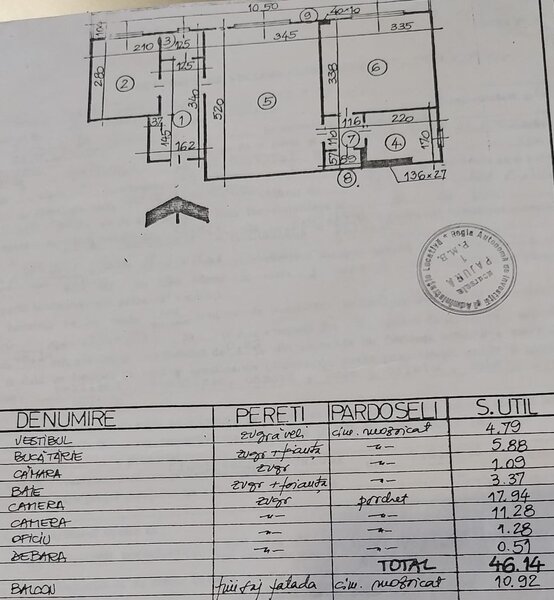 10.50
9
40×10
104
210
3
125
345
335
125
280
2
340
338
6
520
5
37
1
145
116
220
110
7
4
170
162
57
69
8
136×27
Regia Autonomă de
Locativă
P.M.B.
1
PAJURA
DENUMIRE PERETI PARDOSELI S.UTIL
VESTIBUL zugrăveli cim. mozaicat 4.79
BUCĂTĂRIE zugr + faianță -"- 5.88
CĂMARA zugr -"- 1.09
BAIE zugr + faianță -"- 3.37
CAMERA zugr parchet 17.94
CAMERA -"- -"- 11.28
OFICIU -"- -"- 1.28
DEBARA -"- -"- 0.51
TOTAL 46.14
BALCON fațada cim. mozaicat 10.92